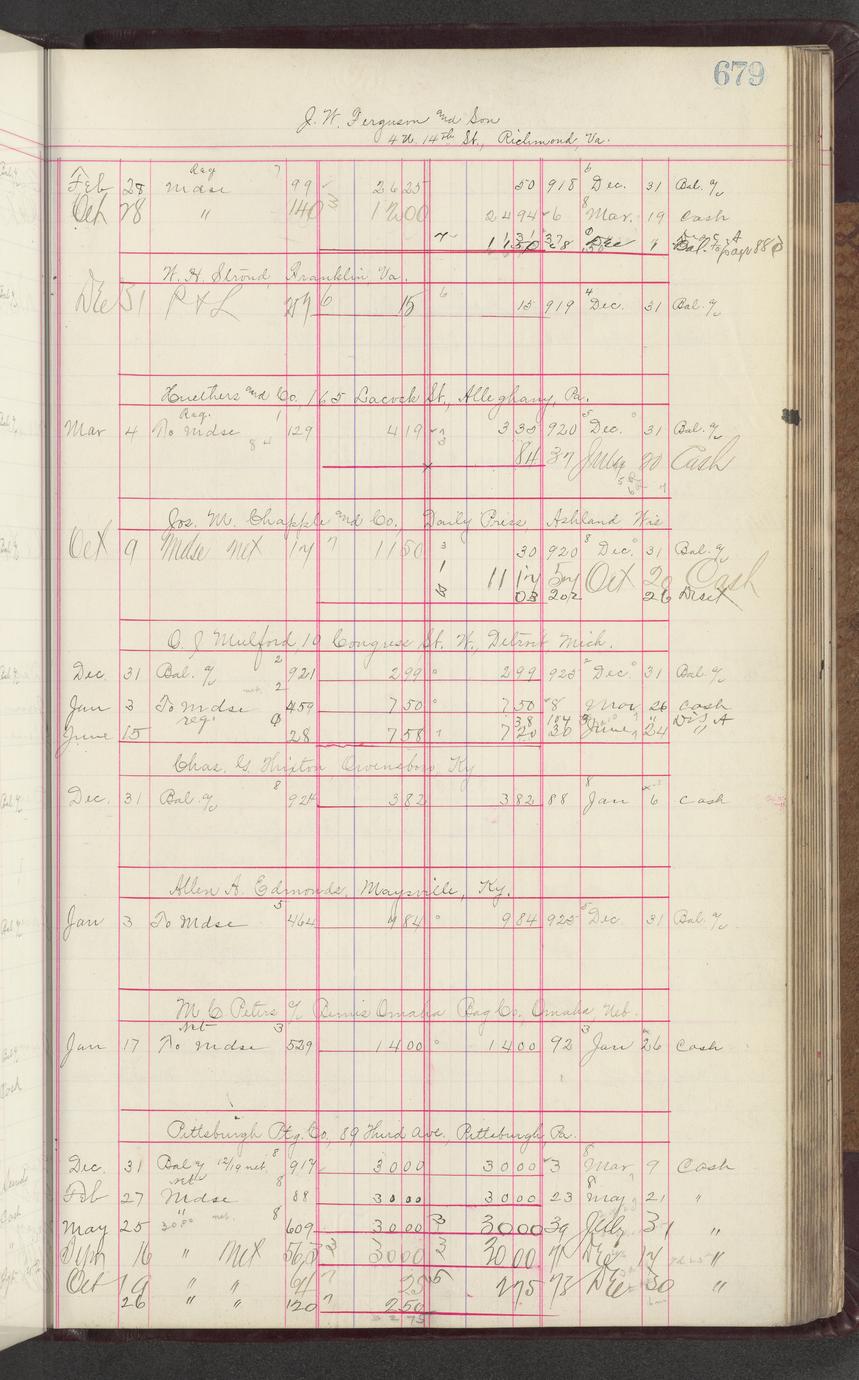 679
J. W. Ferguson and Son
4 N. 14th St., Richmond, Va.
Reg 7 6
Feb 28 Mdse 99 26 25 50 918 Dec. 31 Bal. %
Oct 28 " 140 12 00 24 94 6 Mar. 19 Cash
W. H. Stroud, Franklin Va.
Dec 31 P & L 257 15 15 919 Dec. 31 Bal. %
and Co, 165 Lacock St., Alleghany, Pa.
Reg. 1
Mar 4 To Mdse 129 4 19 3 35 920 Dec. 31 Bal. %
84 37 July 20 Cash
Jos. M. Chapple and Co., Daily Press Ashland Wis
Oct 9 Mdse net 127 11 50 30 920 Dec. 31 Bal. %
11 17 57 Oct 20 Cash
03 202 26 Disct
O. J Mulford 19 Congress St. W., Detroit Mich.
Dec. 31 Bal. % 921 2 99 2 99 925 Dec 31 Bal. %
Jan 3 To Mdse 459 7 50 7 50 8 Mar 26 Cash
reg. 38 104 Dis. A
June 15 28 7 58 7 20 30 June 24 "
Chas. G. Owensboro, Ky
Dec. 31 Bal. % 924 3 82 3 82 88 Jan 6 Cash
Allen A. Edmonds, Maysville, Ky.
Jan 3 To Mdse 464 9 84 9 84 925 Dec. 31 Bal. %
M C Peters % Bemis Omaha Bag Co, Omaha, Neb.
Net 3
Jan 17 To Mdse 529 14 00 14 00 92 Jan 26 Cash
Pittsburgh Ptg. Co, 89 Third Ave., Pittsburgh Pa.
Dec. 31 Bal % 12/19 net. 917 30 00 30 00 3 Mar 9 Cash
Net 8
Feb 27 Mdse 88 30 00 30 00 23 May 21 "
May 25 " net. 609 30 00 30 00 39 July 31 "
16 " Net 563 30 00 30 00 71 Dec 17 "
Oct 19 " " 91 25 2 75 73 Dec 30 "
26 " " 120 2 50